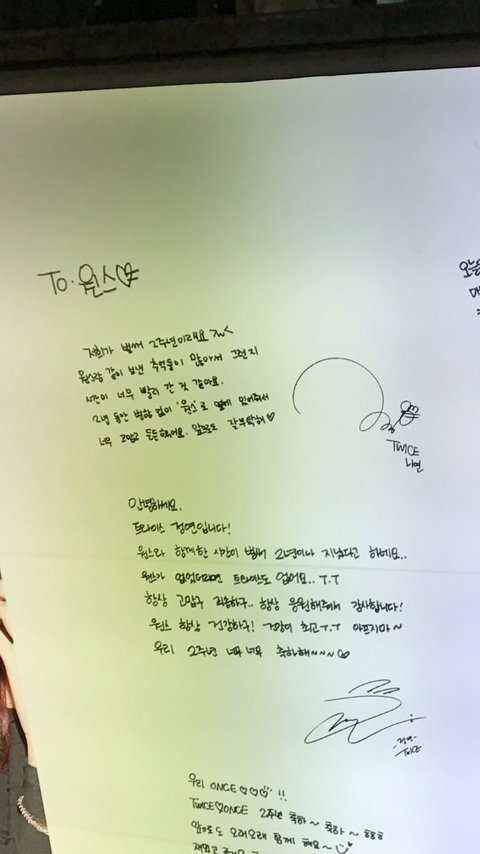 To. 원스♡
저희가 벌써 2주년이래요 >w<
원스랑 같이 보낸 추억들이 많아서 그런지
시간이 너무 빨리 간 것 같아요.
2년 동안 변함 없이 '원스'로 옆에 있어줘서
너무 고맙고 든든해요. 앞으로도 잘부탁해♡
TWICE
나연
안녕하세요.
트와이스 정연입니다!
원스와 함께한 시간이 벌써 2년이나 지났다고 하네요..
원스가 없었더라면 트와이스도 없어요.. T.T
항상 고맙구 죄송하구.. 항상 응원해주셔서 감사합니다!
원스 항상 건강하구! 건강이 최고 T.T 아프지마~
우리 2주년 너무너무 축하해~~~♡
정연
TWICE
우리 ONCE ♡♡♡ !!
TWICE♡ONCE 2주년 축하~ 축하~ ㅎㅎㅎ
앞으로도 오래오래 함께 해요~
오늘